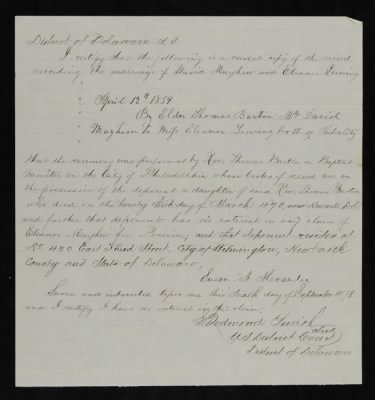 District of Delaware SS
I certify that the following is a correct copy of the record
recording the marriage of David Mayhew and Eleanor
" April 12th 1859
" By Elder Thomas Barton, Mr David
" Mayhew to Miss Eleanor both of
that the ceremony was performed by Rev. Thomas Barton a Baptist
Minister in the City of Philadelphia whose books of record are in
the possession of the deponent a daughter of said Rev. Thomas Barton
who died on the twenty third day of March 1870, near Newark Del.
and further that deponent has no interest in any claim of
Eleanor Mayhew for Pension; and that deponent resides at
No 400 East Third Street, City of Wilmington, New Castle
County and State of Delaware.
Susan A. Alexander
Sworn and subscribed before me this Sixth day of September 1878
and I certify I have no interest in the claim.
Smith
Clerk
US District Court
District of Delaware